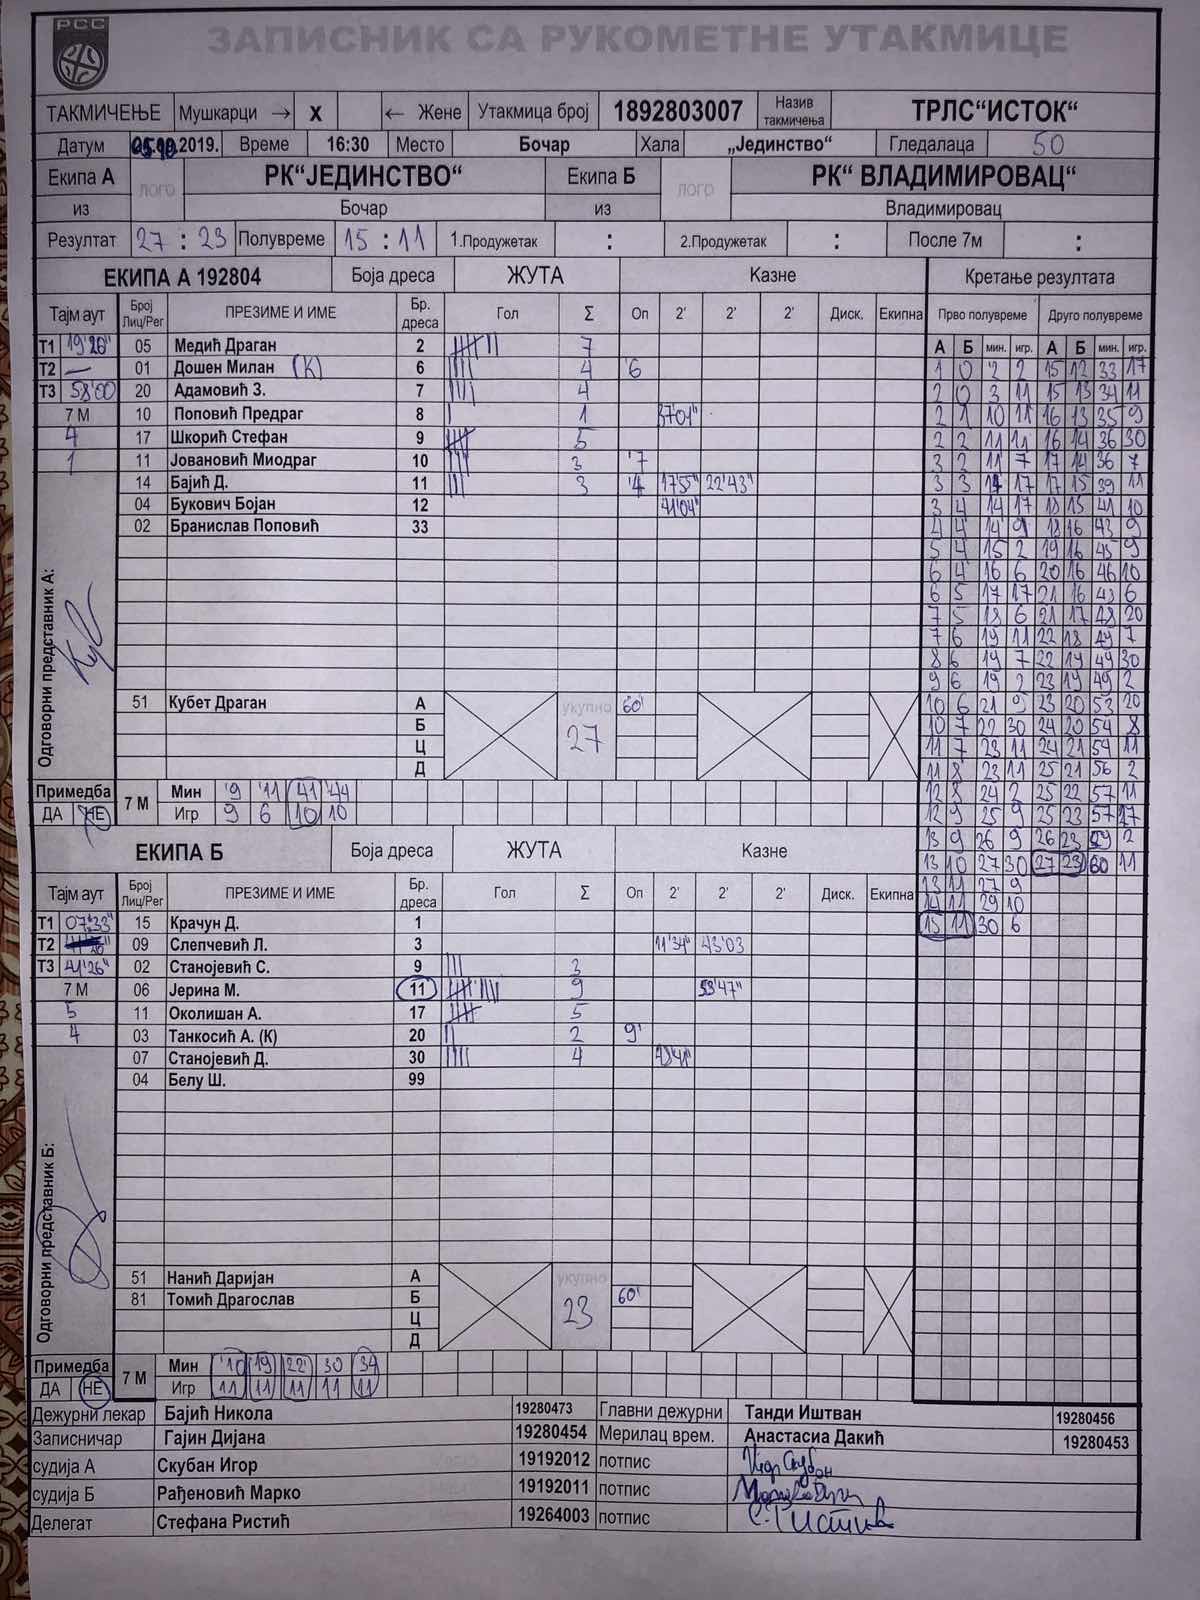 РСС
ЗАПИСНИК СА РУКОМЕТНЕ УТАКМИЦЕ
ТАКМИЧЕЊЕ Мушкарци → X ← Жене Утакмица број 1892803007 Назив такмичења ТРЛС“ИСТОК“
Датум 2019. Време 16:30 Место Бочар Хала „Јединство“ Гледалаца 50
Екипа А ЛОГО РК“ЈЕДИНСТВО“ Екипа Б ЛОГО РК“ ВЛАДИМИРОВАЦ“
из Бочар из Владимировац
Резултат 27 : 23 Полувреме 15 : 11 1.Продужетак : 2.Продужетак : После 7м :
ЕКИПА А 192804 Боја дреса ЖУТА Казне Кретање резултата
Тајм аут Број Лиц/Рег ПРЕЗИМЕ И ИМЕ Бр. дреса Гол Σ Оп 2' 2' 2' Диск. Екипна Прво полувреме Друго полувреме
А Б мин. игр. А Б мин. игр.
Т1 19'26" 05 Медић Драган 2 7
Т2 — 01 Дошен Милан (К) 6 4 '6
Т3 58'00 20 Адамовић З. 7 4
7 М 10 Поповић Предраг 8 1 37'01"
4 17 Шкорић Стефан 9 5
1 11 Јовановић Миодраг 10 3 '7
14 Бајић Д. 11 3 '4 17'55" 22'43"
04 Букович Бојан 12 41'04"
02 Бранислав Поповић 33
1 0 2 2 15 12 33 17
2 0 3 11 15 13 34 11
2 1 10 11 16 13 35 9
2 2 11 11 16 14 36 30
3 2 11 7 17 14 36 7
3 3 17 17 15 39 11
3 4 14 17 18 15 41 10
4 4 14 9 18 16 43 9
5 4 15 2 19 16 45 9
6 4 16 6 20 16 46 10
6 5 17 17 21 16 6
7 5 18 6 21 17 48 20
7 6 19 11 22 18 49 7
8 6 19 7 22 19 49 30
9 6 19 2 23 19 49 2
10 6 21 9 23 20 53 20
10 7 22 30 24 20 54 8
11 7 23 11 24 21 54 11
11 8 23 11 25 21 56 2
12 8 24 2 25 22 57 11
12 9 25 9 25 23 57 17
13 9 26 9 26 23 59 2
13 10 27 30 27 23 60 11
13 11 27 9
14 11 29 10
15 11 30 6
Одговорни представник А:
51 Кубет Драган А укупно 60'
Б 27
Ц
Д
Примедба 7 М Мин '9 '11 41 '44
ДА НЕ Игр 9 6 10 10
ЕКИПА Б Боја дреса ЖУТА Казне
Тајм аут Број Лиц/Рег ПРЕЗИМЕ И ИМЕ Бр. дреса Гол Σ Оп 2' 2' 2' Диск. Екипна
Т1 07'33" 15 Крачун Д. 1
Т2 09 Слепчевић Л. 3 11'34" 43'03
Т3 41'26" 02 Станојевић С. 9 3
7 М 06 Јерина М. 11 9 53'47"
5 11 Околишан А. 17 5
4 03 Танкосић А. (К) 20 2 9'
07 Станојевић Д. 30 4
04 Белу Ш. 99
Одговорни представник Б:
51 Нанић Даријан А укупно
81 Томић Драгослав Б 23 60'
Ц
Д
Примедба 7 М Мин '10 19 22' 30 34
ДА НЕ Игр 11 11 11 11 11
Дежурни лекар Бајић Никола 19280473 Главни дежурни Танди Иштван 19280456
Записничар Гајин Дијана 19280454 Мерилац врем. Анастасиа Дакић 19280453
судија А Скубан Игор 19192012 потпис
судија Б Рађеновић Марко 19192011 потпис
Делегат Стефана Ристић 19264003 потпис